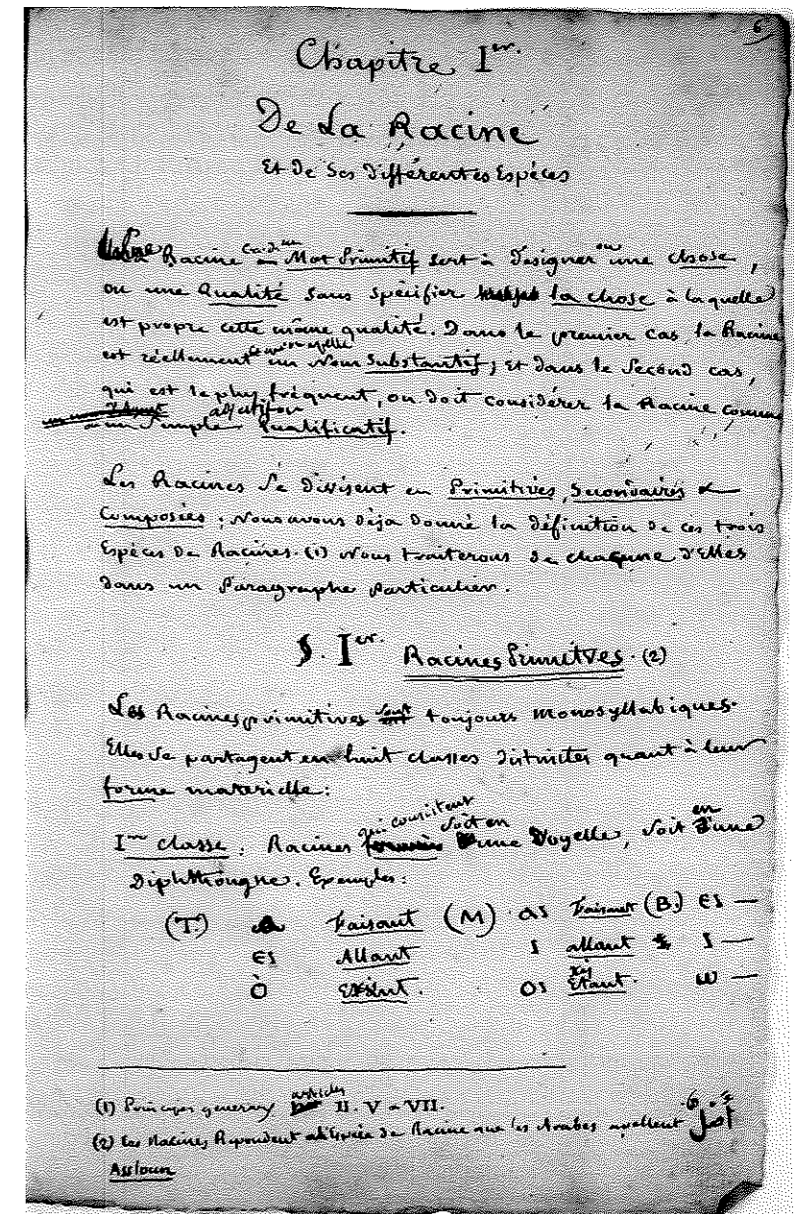 6
Chapitre Ier.
De La Racine
Et de Ses Différentes Espèces
Une Racine ou Mot Primitif sert à désigner ou une chose,
ou une Qualité sans spécifier la chose à laquelle
est propre cette même qualité. Dans le premier cas, la Racine
est réellement un Nom Substantif; et dans le Second cas,
qui est le plus fréquent, on doit considérer la Racine comme
un Simple adjectif ou Qualificatif.
Les Racines se divisent en Primitives, Secondaires &
Composées; Nous avons déja donné la définition de ces trois
Espèces de Racines. (1) Nous traiterons de chaqune d'Elles
dans un Paragraphe Particulier.
§. Ier. Racines Primitives. (2)
Les Racines primitives sont toujours monosyllabiques.
Elles se partagent en huit classes distinctes quant à leur
forme materielle:
Ire classe. Racines qui consistent soit en une Voyelle, soit en une
Diphthongue. Exemples:
(T.) ⲁ Faisant (M) ⲁⲓ Faisant (B.) ⲉⲓ —
ⲉⲓ Allant ⲓ allant ⲓ —
ⲟ̀ Existant. ⲟⲓ Etant. ⲱ —
(1) Principes generaux articles II. V à VII.
(2) Les Racines Répondent à l'Espèce de Racine que les Arabes apellent أصل
Assloun